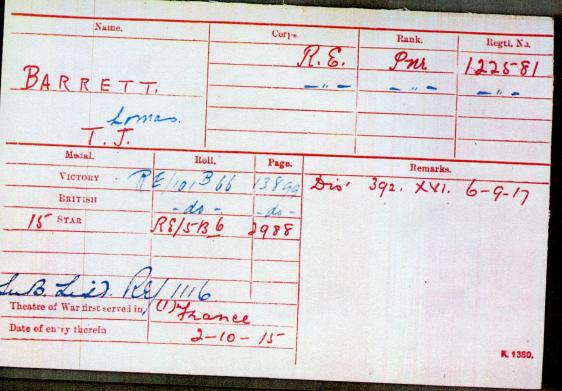 Name. Corps. Rank. Regtl. No.
BARRETT. R.E. Pnr 122581
—„— —„— —„—
T. J.
Medal. Roll. Page. Remarks.
VICTORY RE/101B66 13899 Dis' 392. XVI. 6-9-17
BRITISH -do- -do-
15 STAR RE/5B6 2988
RE/1116
Theatre of War first served in (1) France
Date of entry therein 2-10-15
K. 1380.